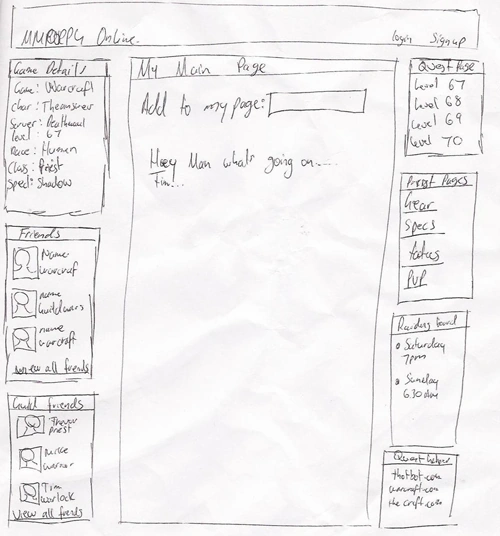 MMORPG Online.
Login Signup
Game Details
Game: Warcraft
Char:
Server:
level: 67
Race: Human
Class: Priest
Spec: Shadow
Friends
Name
warcraf
name
guildwars
name
warcraft
view all friends
Guild friends
Trevor
Priest
Mike
warrior
Tim
warlock
View all friends
My Main Page
Add to my page:
Hey Man whats going on.....
Tim...
Quest Page
Level 67
Level 68
Level 69
Level 70
Priest Pages
Gear
Specs
PVP
Raiding board
Saturday
7pm
Sunday
6.30
Quest helper
thotbot.com
warcraft.com
the craft.com